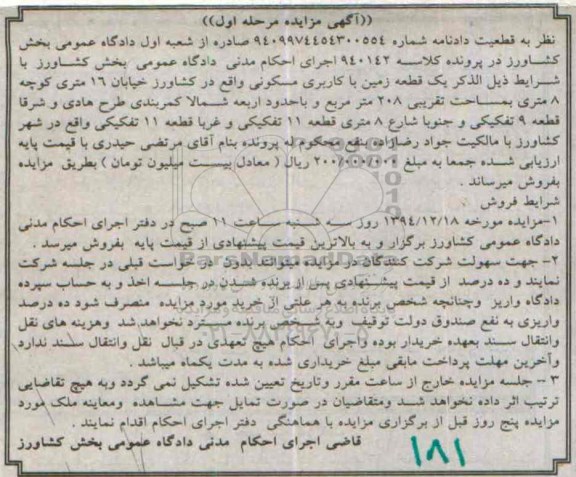 ((آگهی مزایده مرحله اول))
نظر به قطعیت دادنامه شماره ۹۴۰۹۹۷۴۴۵۴۳۰۰۵۵۴ صادره از شعبه اول دادگاه عمومی بخش
کشاورز در پرونده کلاسه ۹۴۰۱۴۲ اجرای احکام مدنی دادگاه عمومی بخش کشاورز با
شرایط ذیل الذکر یک قطعه زمین با کاربری مسکونی واقع در کشاورز خیابان ۱۶ متری کوچه
۸ متری بمساحت تقریبی ۲۰۸ متر مربع و باحدود اربعه شمالا کمربندی طرح هادی و شرقا
قطعه ۹ تفکیکی و جنوبا شارع ۸ متری قطعه ۱۱ تفکیکی و غربا قطعه ۱۱ تفکیکی واقع در شهر
کشاورز با مالکیت جواد رضازاده بنفع محکوم له پرونده بنام آقای مرتضی حیدری با قیمت پایه
ارزیابی شده جمعا به مبلغ ۲۰۰/۰۰۰/۰۰۰ ریال ( معادل بیست میلیون تومان ) بطریق مزایده
بفروش میرساند .
شرایط فروش
۱-مزایده مورخه ۱۳۹۴/۱۲/۱۸ روز سه شنبه ساعت ۱۱ صبح در دفتر اجرای احکام مدنی
دادگاه عمومی کشاورز برگزار و به بالاترین قیمت پیشنهادی از قیمت پایه بفروش میرسد .
۲- جهت سهولت شرکت کنندگان در مزایده میتوانند بدون درخواست قبلی در جلسه شرکت
نمایند و ده درصد از قیمت پیشنهادی پس از برنده شدن در جلسه اخذ و به حساب سپرده
دادگاه واریز وچنانچه شخص برنده به هر علتی از خرید مورد مزایده منصرف شود ده درصد
واریزی به نفع صندوق دولت توقیف وبه شخص برنده مسترد نخواهد شد وهزینه های نقل
وانتقال سند بعهده خریدار بوده واجرای احکام هیچ تعهدی در قبال نقل وانتقال سند ندارد
وآخرین مهلت پرداخت مابقی مبلغ خریداری شده به مدت یکماه میباشد .
۳ - جلسه مزایده خارج از ساعت مقرر وتاریخ تعیین شده تشکیل نمی گردد وبه هیچ تقاضایی
ترتیب اثر داده نخواهد شد ومتقاضیان در صورت تمایل جهت مشاهده ومعاینه ملک مورد
مزایده پنج روز قبل از برگزاری مزایده با هماهنگی دفتر اجرای احکام اقدام نمایند .
قاضی اجرای احکام مدنی دادگاه عمومی بخش کشاورز
۱۸۱